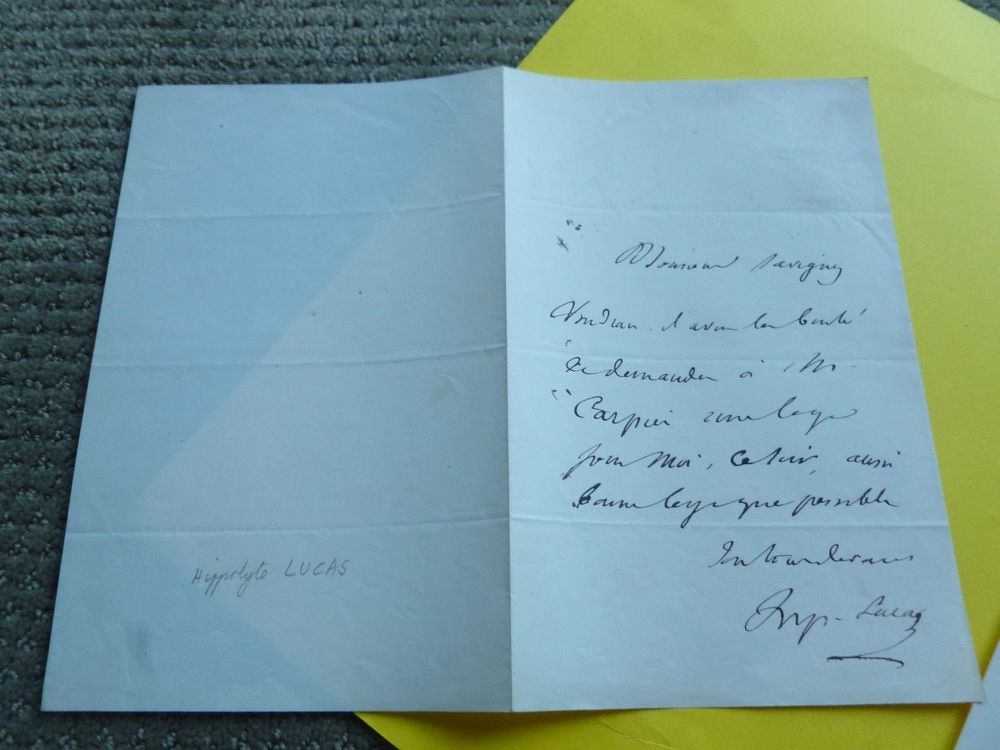 Hippolyte LUCAS
Monsieur Savigny
Voudrait-il avoir la bonté
de demander à M.
Carpier une loge
pour moi, ce soir, aussi
bonne loge que possible
Hip. Lucas